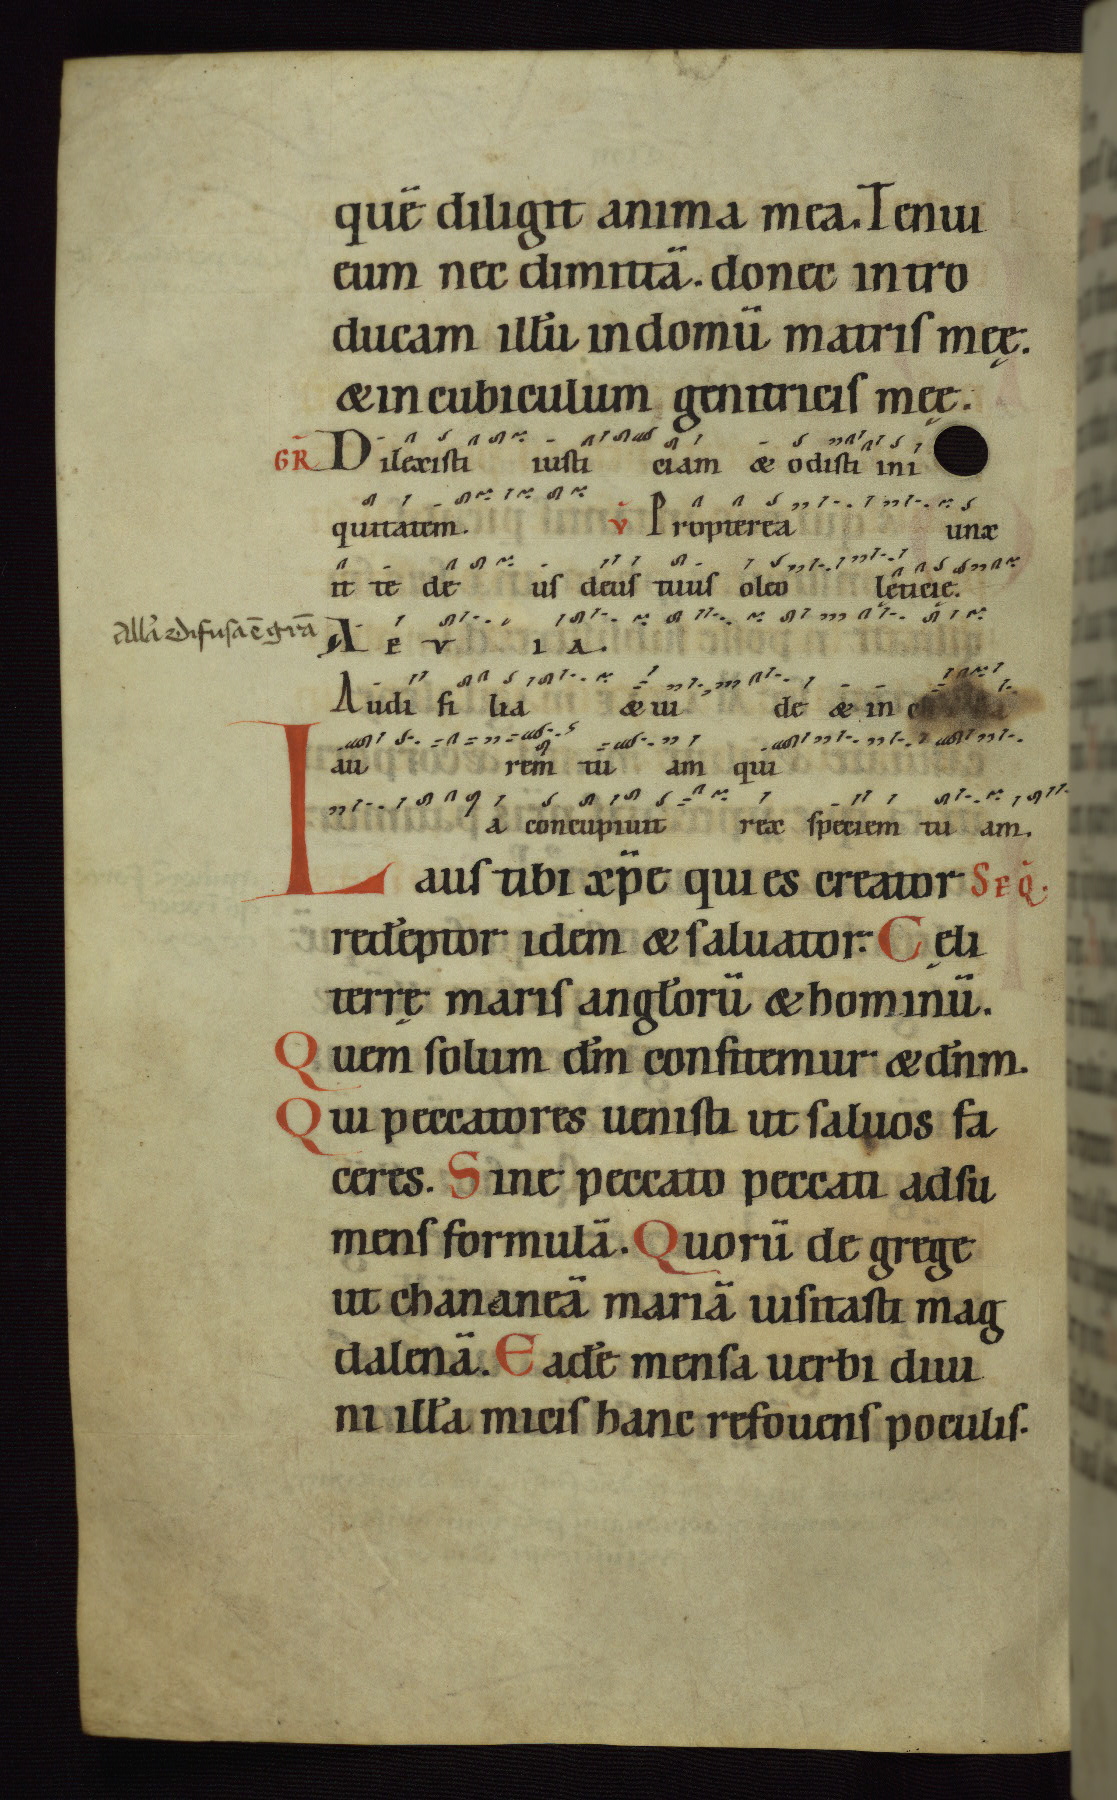 quē diligit anima mea. Tenui
eum nec dimittā. donec intro
ducam illū in domū matris meę.
& in cubiculum genitricis meę.
GR̄ Dilexisti iusti ciam & odisti ini
quitatem. v̄ Propterea unx
it te de us deus tuus oleo lętitię.
All'a Difusa ē gr̄a A E V I A.
Audi fi lia & ui de & in
au rem tu am qui
a concupiuit rex speciem tu am.
Laus tibi xp̄e qui es creator SEQ̄.
redēptor idem & saluator. Cęli
terrę maris angl̄orū & hominū.
Quem solum dm̄ confitemur & dn̄m.
Qui peccatores uenisti ut saluos fa
ceres. Sine peccato peccati adsu
mens formulā. Quorū de grege
ut chananeā mariā uisitasti mag
dalenā. Eadē mensa uerbi diui
ni ill̄a micis hanc refouens poculis.